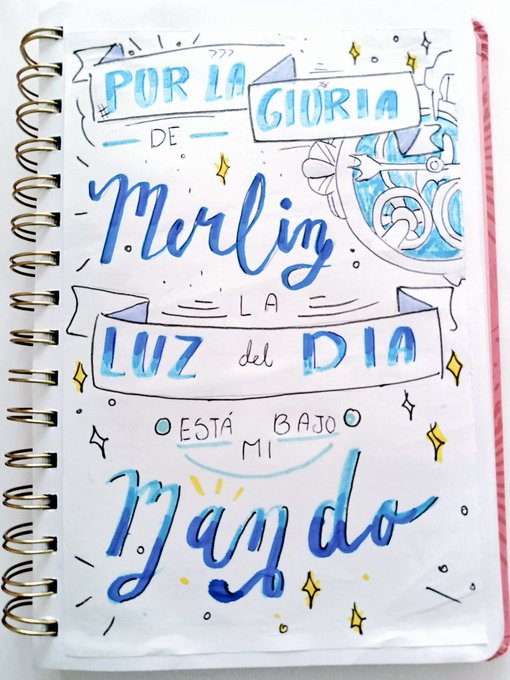 POR LA
GLORIA
DE
Merlin
LA
LUZ del DIA
ESTÁ BAJO
MI
Mando